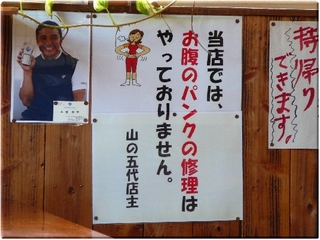 当店では、
お腹のパンクの修理は
やっておりません。
山の五代店主
持帰り
できます!